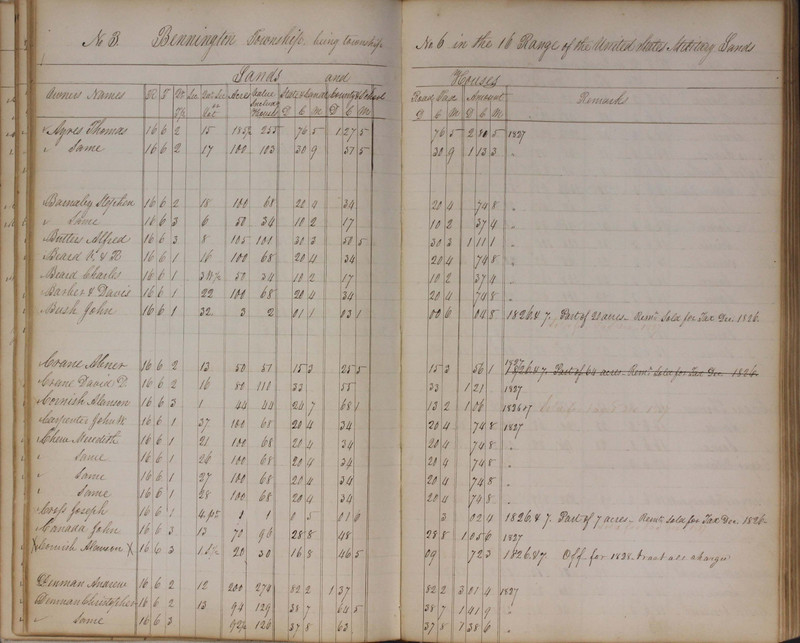 No 3. Bennington Township, being township No 6 in the 16 Range of the United States Military Lands
Lands and Houses
Owners Names R T Qr Sec Lot Acres Value State & Canal County & School Road Tax Amount Remarks
D C M D C M D C M D C M
Ayres Thomas 16 6 2 15 76 5 1 27 5 76 5 2 80 5 1827
Same 16 6 2 17 100 103 30 9 51 5 30 9 1 13 3 "
Barnaby Stephen 16 6 2 18 100 68 20 4 34 20 4 74 8 "
Same 16 6 3 6 50 34 10 2 17 10 2 37 4 "
Buttles Alfred 16 6 3 8 105 101 30 3 50 5 30 3 1 11 1 "
Beard 16 6 1 16 100 68 20 4 34 20 4 74 8 "
Beard Charles 16 6 1 50 34 10 2 17 10 2 37 4 "
Barber & Davis 16 6 1 22 100 68 20 4 34 20 4 74 8 "
Bush John 16 6 1 32 3 2 1826 & 7. Part of 20 acres. Remr. Sold for Tax Dec. 1826.
Crane Abner 16 6 2 13 50 51 15 3 25 5 15 3 56 1 1827
1826 & 7. Part of 64 acres. Remr. Sold for Tax Dec. 1826.
Crane David D. 16 6 2 16 80 110 33 55 33 1 21 1827
Cornish Alanson 16 6 3 1 44 44 24 7 68 1 13 2 1 06 1826 & 7
Carpenter John 16 6 1 37 100 68 20 4 34 20 4 74 8 1827
Chew Meredith 16 6 1 21 100 68 20 4 34 20 4 74 8 "
Same 16 6 1 26 100 68 20 4 34 20 4 74 8 "
Same 16 6 1 27 100 68 20 4 34 20 4 74 8 "
Same 16 6 1 28 100 68 20 4 34 20 4 74 8 "
Cross Joseph 16 6 1 4 pt 1 1 1826 & 7. Part of 7 acres. Remr. Sold for Tax Dec 1826.
Canada John 16 6 3 13 70 96 28 8 48 28 8 1 05 6 1827
X Cornish Alanson X 16 6 3 20 30 16 8 46 5 09 72 3 1826 & 7 Off for 1828.
Denman Andrew 16 6 2 12 200 274 82 2 1 37 82 2 3 01 4 1827
Denman Christopher 16 6 2 13 94 129 38 7 64 5 38 7 1 41 9 "
Same 16 6 3 126 37 8 63 37 8 1 38 6 "